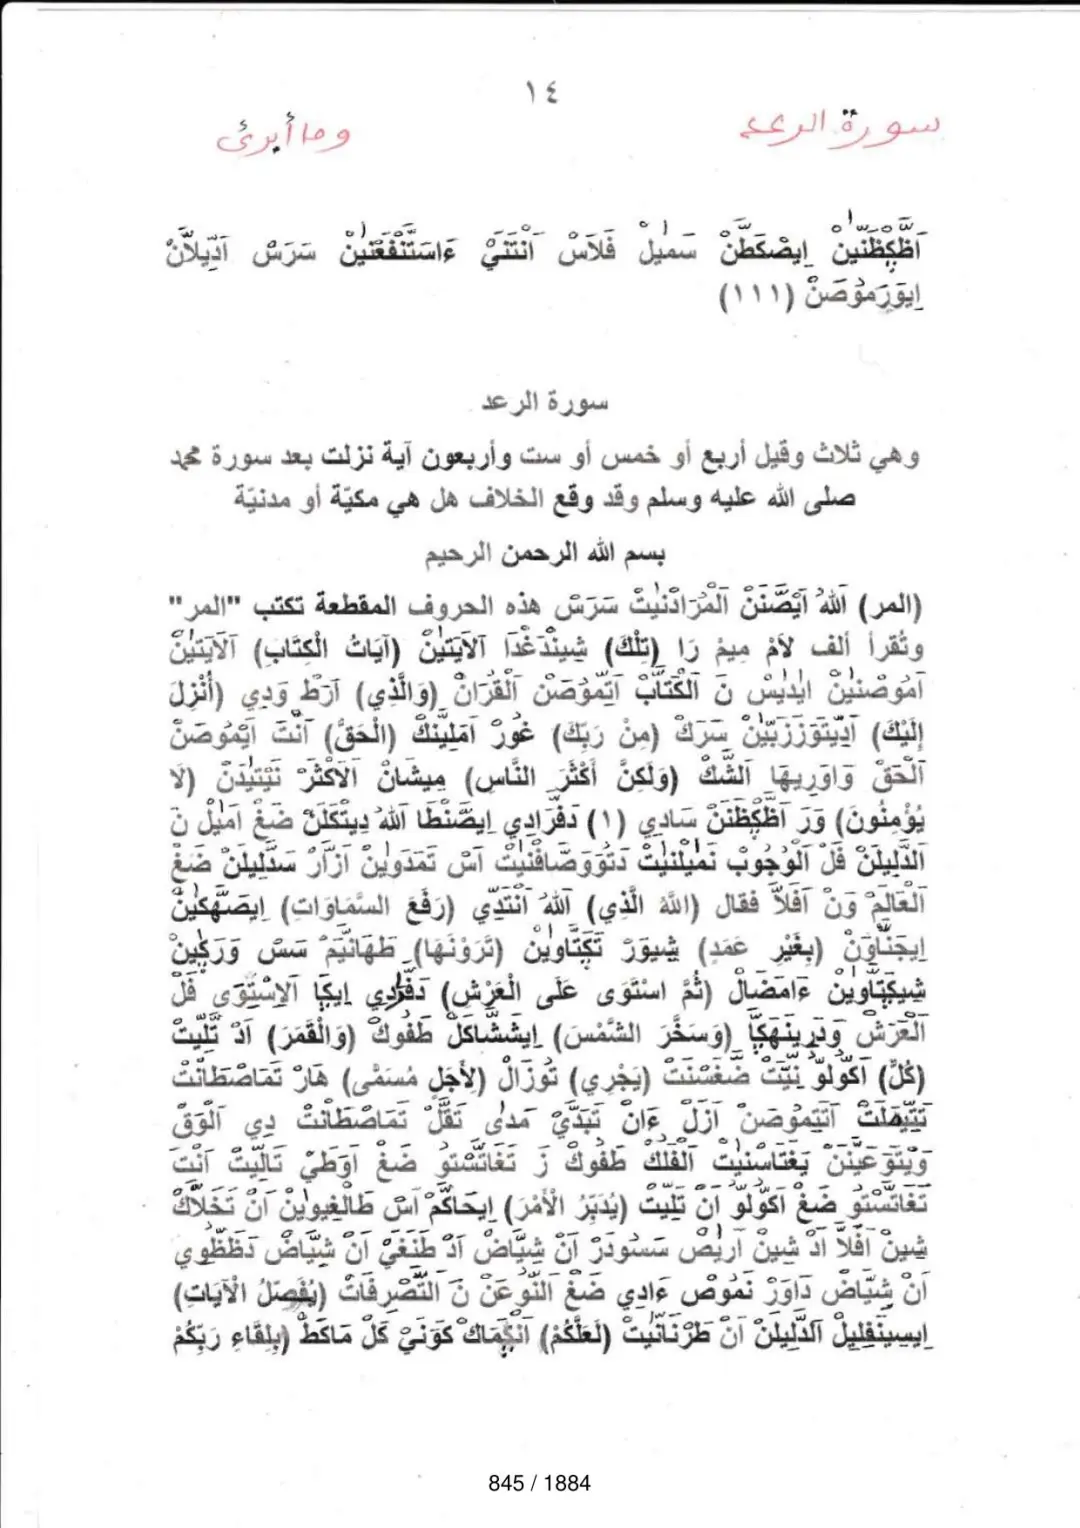 ١٤
سورة الرعد
وما أبرئ
اَظَّكِظَنِينْ اِيضْكَطَّنْ سَمِيلْ فَلَاسْ اَنْتَنَيْ ءَاسَتَّنْفَعَنِينْ سَرَسْ اَدِّيلَانْ
اِيوَرَمُوصَنْ (١١١)
سورة الرعد
وهي ثلاث وقيل أربع أو خمس أو ست وأربعون آية نزلت بعد سورة محمد
صلى الله عليه وسلم وقد وقع الخلاف هل هي مكيّة أو مدنيّة
بسم الله الرحمن الرحيم
(المر) اَللهُ اَيَصَّنَنْ اَلْمُرَادْنَيِتْ سَرَسْ هذه الحروف المقطعة تكتب "المر"
وتُقرأ ألف لَامْ مِيمْ رَا (تِلْكَ) شِينْدَغْدَا اَلْآيَتَيْنْ (آيَاتُ الْكِتَابِ) اَلْآيَتَيْنْ
اَمُوصْنَيْنْ اَيْدَيِسْ نَ اَلْكَتَابْ اَتِّمُوصَنْ اَلْقُرَانْ (وَالَّذِي) اَرَطْ وَدِي (أُنْزِلَ
إِلَيْكَ) اَدِّيتَوَزَزَبَيْنْ سَرَكْ (مِنْ رَبِّكَ) غُورْ اَمَلِيِّنَكْ (الْحَقُّ) اَنْتَ اَيْمُوصَنْ
اَلْحَقْ وَاوَرِيهَا اَلشَّكْ (وَلَكِنَّ أَكْثَرَ النَّاسِ) مِيشَانْ اَلْأَكْثَرْ نَيْتِيدَنْ (لَا
يُؤْمِنُونَ) وَرَ اَظَّكِظَنَنْ سَادِي (١) دَفَّرَادِي اِيصَّنْطَا اَللهُ دِيتَكَلَنْ ضَغْ اَمَيْلْ نَ
اَلدَّلِيلَنْ فَلْ اَلْوُجُوبْ نَمَيْلَنَيِتْ دَتَوَوَصَافَنَيِتْ اَسْ تَمَدَوَيْنْ اَزَّارْ سَدَّلِيلَنْ ضَغْ
اَلْعَالَمْ وَنْ اَفَلَّا فقال (اللهُ الَّذِي) اَللهُ اَنْتَدِّي (رَفَعَ السَّمَاوَاتِ) اِيصَّهَكَيْنْ
اِيجَنَّاوَنْ (بِغَيْرِ عَمَدٍ) شِيوَرْ تَكَتَّاوَيْنْ (تَرَوْنَهَا) طَهَانَيِمْ سَسْ وَرَكَيْنْ
شِيكَتَّاوَيْنْ ءَامَضَالْ (ثُمَّ اسْتَوَى عَلَى الْعَرْشِ) دَفَّرَادِي اِيكَا اَلْإِسْتَوَى فَلْ
اَلْعَرْشْ وَدَرِينَهَكَّا (وَسَخَّرَ الشَّمْسَ) اِيشَّشَاكَلْ طَفُوكْ (وَالْقَمَرَ) اَدْ تَلَّيِتْ
(كُلٌّ) اَكُولُّو نَيَّتْ ضَغْسَنَتْ (يَجْرِي) تُوزَالْ (لِأَجَلٍ مُسَمًّى) هَارْ تَمَاصْطَانْتْ
تَتِّيقَلَتْ اَتَّتِمُوصَنْ اَزَلْ ءَانْ تَبَدَّيْ مَدَى تَقَّلْ تَمَاصْطَانْتْ دِي اَلْوَقْ
وَيَتَوَعَيَّنَنْ يَغْتَاسْنَيِتْ اَلْفَلَكْ طَفُوكْ زَ تَغَاتَّسْتُو ضَغْ اَوَطَيْ تَالَّيِتْ اَنْتَ
تَغَاتَّسْتُو ضَغْ اَكُولُّو اَنْ تَلَّيِتْ (يُدَبِّرُ الْأَمْرَ) اِيحَاكَمْ اَسْ طَالْغِيوَيْنْ اَنْ تَخَلَّاكْ
شِينْ اَفَلَّا اَدْ شِينْ اَرَيْضْ سَسُّودَرْ اَنْ شِيَّاضْ اَدْ طَنَغَيْ اَنْ شِيَّاضْ دَظَظَّوِي
اَنْ شِيَّاضْ دَاوَرْ نَمُوصْ ءَادِي ضَغْ اَلنَّوْعَنْ نَ اَلتَّصْرِفَاتْ (يُفَصِّلُ الْآيَاتِ)
اِيسِينَفْلِيلْ اَلدَّلِيلَنْ اَنْ طَرْنَانَيِتْ (لَعَلَّكُمْ) اَنْكِمَاكْ كَوَنَيْ كَلْ مَاكَطْ (بِلِقَاءِ رَبِّكُمْ
845 / 1884